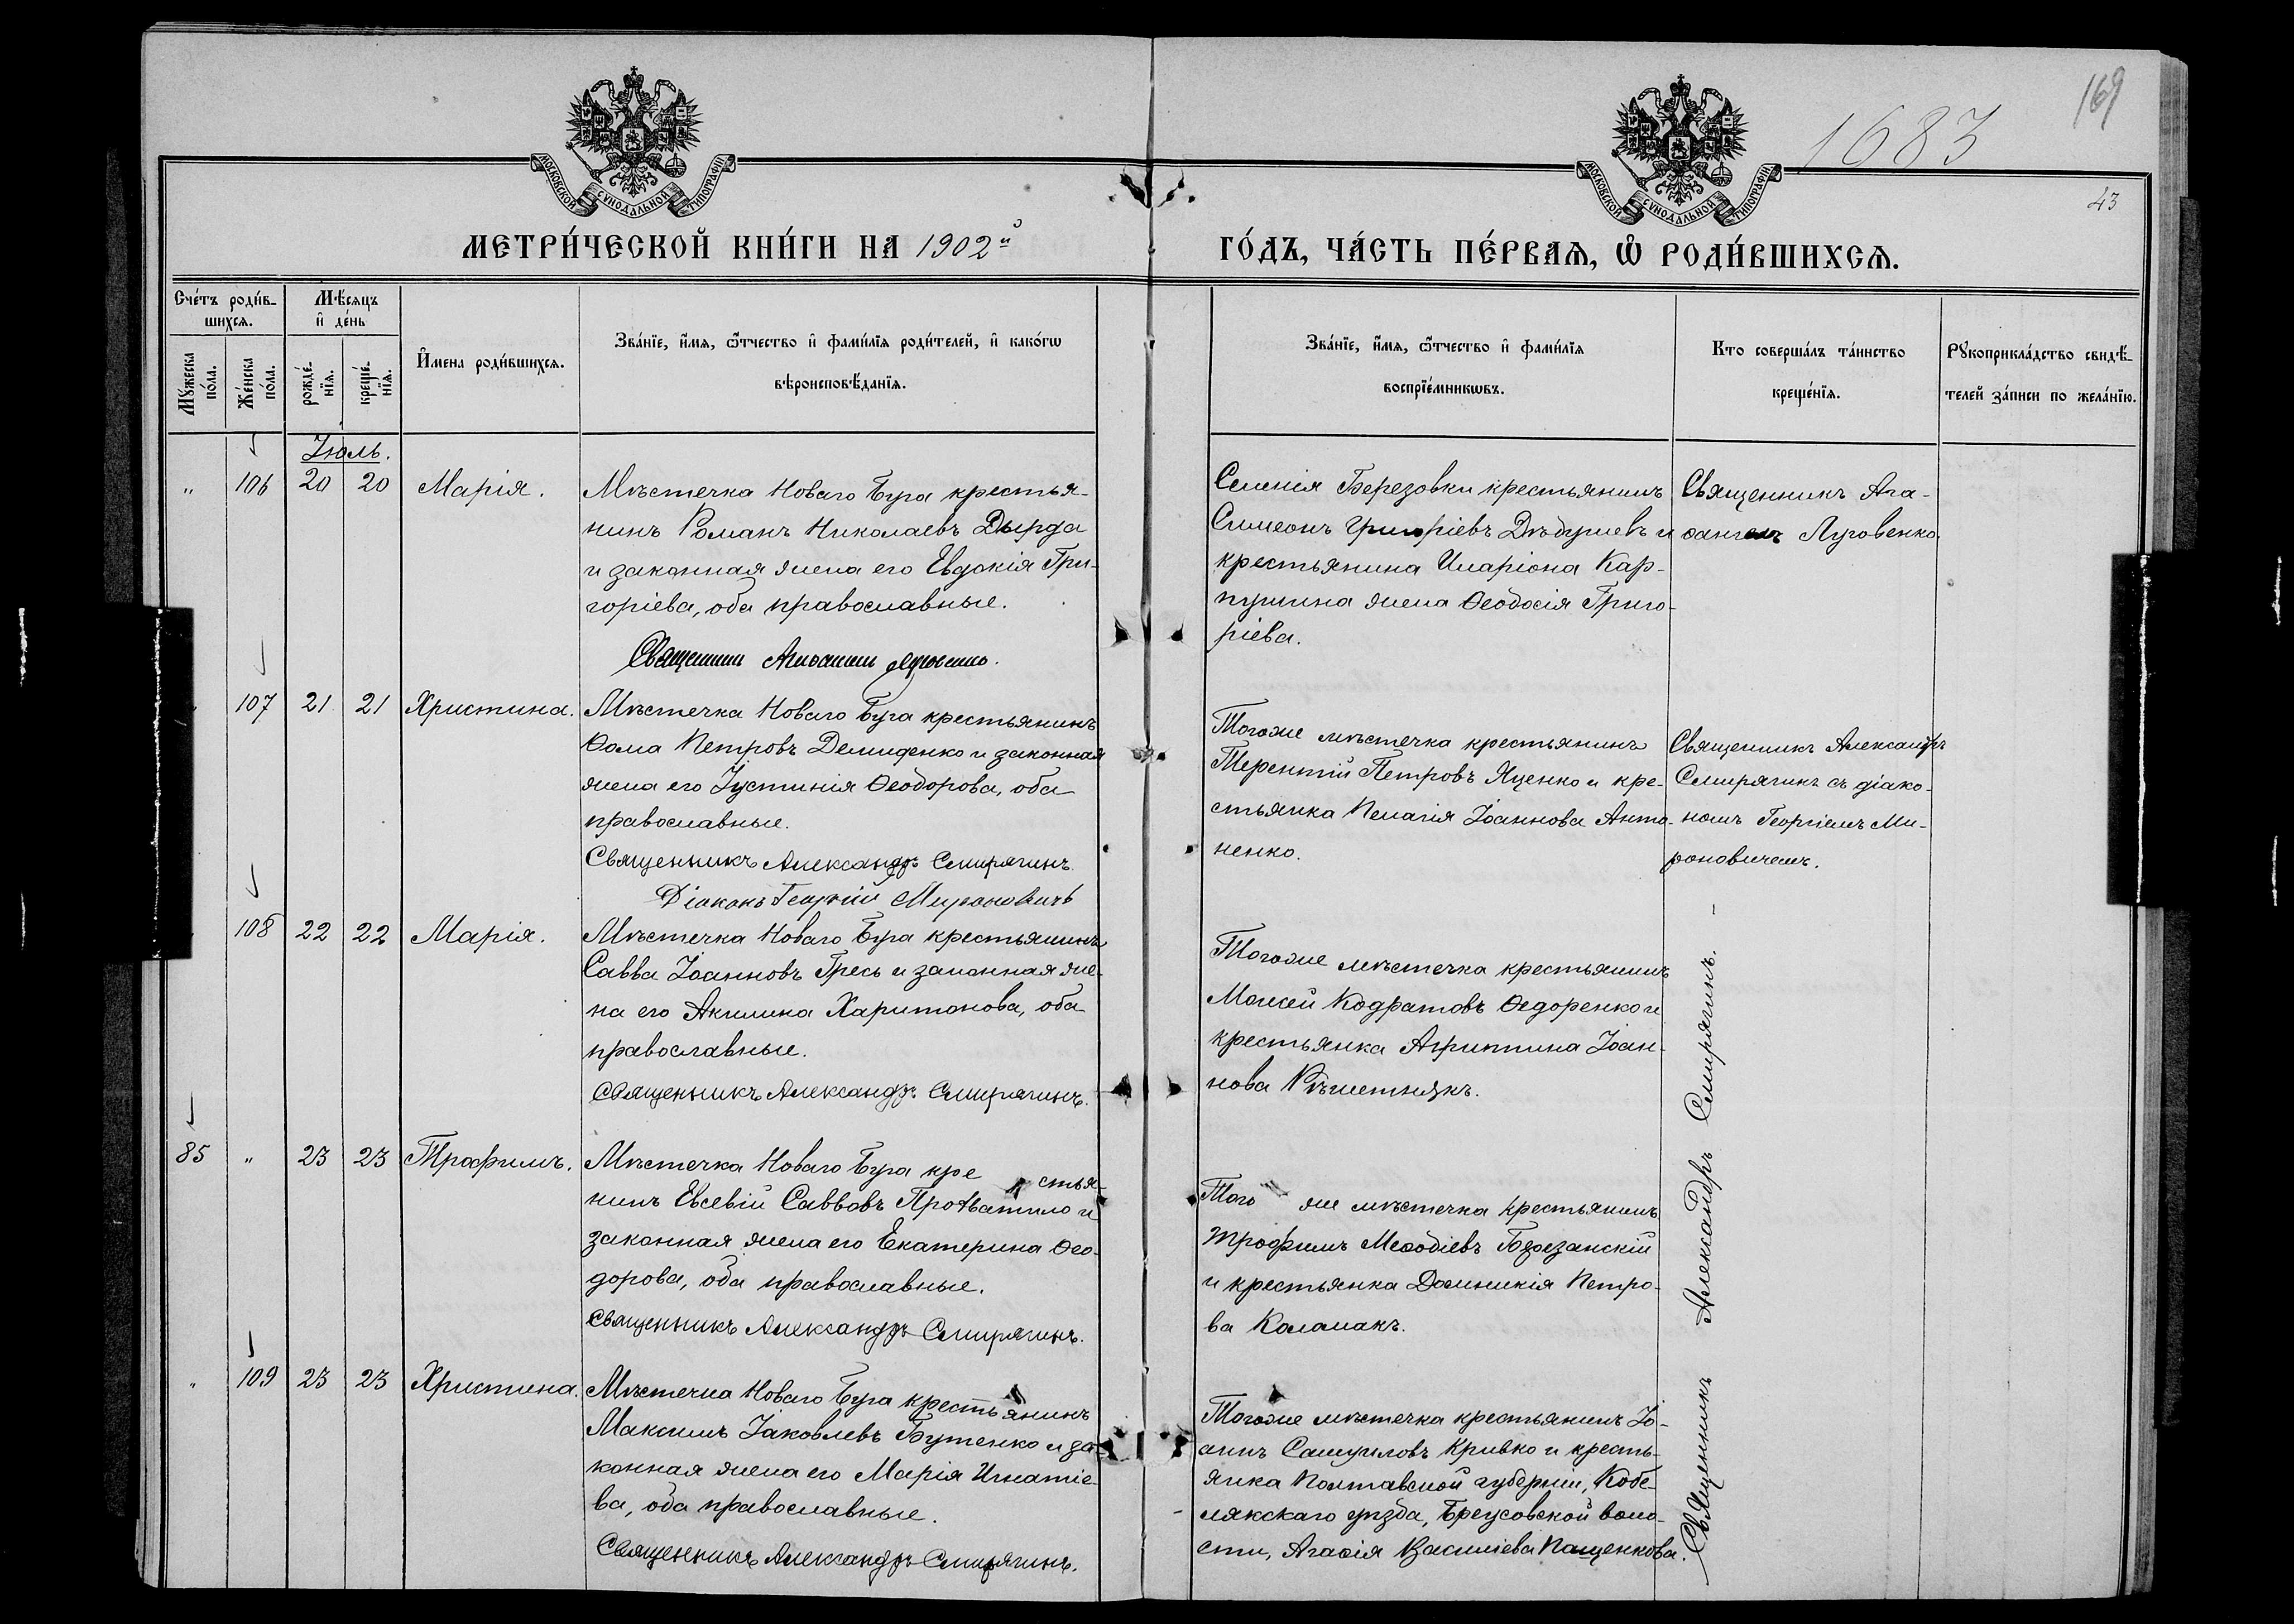 169
1683
43
МОСКОВСКОЙ СѴНОДАЛЬНОЙ ТИПОГРАФІИ
МОСКОВСКОЙ СѴНОДАЛЬНОЙ ТИПОГРАФІИ
МЕТРИ́ЧЕСКОЙ КНИ́ГИ НА 1902й
ГО́ДЪ, ЧА́СТЬ ПЕ́РВАѦ, Ѽ РОДИ́ВШИХСѦ.
Сче́тъ роди́в-
шихсѧ.
Мѣ́сѧцъ
и҆ де́нь
Мꙋ́жеска
по́ла.
Же́нска
по́ла.
рожде́-
нїѧ.
креще́-
нїѧ.
И҆мена роди́вшихсѧ.
Зва́нїе, и҆́мѧ, ѻ҆́тчество и҆ фами́лїѧ роди́телей, и҆ како́гѡ
вѣроисповѣ́данїѧ.
Зва́нїе, и҆́мѧ, ѻ҆́тчество и҆ фами́лїѧ
воспрїе́мникѡвъ.
Кто соверша́лъ та́инство
креще́нїѧ.
Рꙋкоприкла́дство свидѣ́-
телей за́писи по жела́нїю.
Іюль.
„ 106 20 20 Марія.
Мѣстечка Новаго Буга крестья-
нинъ Романъ Николаевъ Дырда
и законная жена его Евдокія Гри-
горіева, оба православные.
Священник Агаѳангел Луговенко.
Селенія Березовки крестьянинъ
Симеонъ Григоріевъ Дѣдушевъ и
крестьянина Иларіона Кар-
пушина жена Ѳеодосія Григо-
ріева.
Священникъ Ага-
ѳангелъ Луговенко
107 21 21 Христина.
Мѣстечка Новаго Буга крестьянинъ
Ѳома Петровъ Демиденко и законная
жена его Іустинія Ѳеодорова, оба
православные.
Священникъ Александръ Смирягинъ
Діаконъ Георгій Мироновичъ
Тогоже мѣстечка крестьянинъ
Терентій Петровъ Яценко и кре-
стьянка Пелагія Іоаннова Анто-
ненко.
Священникъ Александръ
Смирягинъ съ діако-
номъ Георгіемъ Ми-
роновичемъ.
108 22 22 Марія.
Мѣстечка Новаго Буга крестьянинъ
Савва Іоанновъ Гресь и законная же-
на его Акилина Харитонова, оба
православные.
Священникъ Александръ Смирягинъ.
Тогоже мѣстечка крестьянинъ
Моисей Кодратовъ Ѳедоренко и
крестьянка Агриппина Іоан-
нова Рѣшетнякъ.
85 „ 23 23 Трофимъ.
Мѣстечка Новаго Буга кре стья-
нинъ Евсевій Савво­въ Прохватило и
законная жена его Екатерина Ѳео-
дорова, оба православные.
Священникъ Александръ Смирягинъ.
Того же мѣстечка крестьянинъ
Трофимъ Меѳодіевъ Березанскій
и крестьянка Домникія Петро-
ва Коломакъ.
„ 109 23 23 Христина.
Мѣстечка Новаго Буга крестьянинъ
Максимъ Іаковлевъ Бутенко и за-
конная жена его Марія Игнатіе-
ва, оба православные.
Священникъ Александръ Смирягинъ.
Тогоже мѣстечка крестьянинъ Іо-
аннъ Самуиловъ Кривко и кресть-
янка Полтавской губерніи, Кобе-
лякскаго уѣзда, Бреусовской воло-
сти, Агаѳія Василіева Пащенкова.
Священникъ Александръ Смирягинъ.